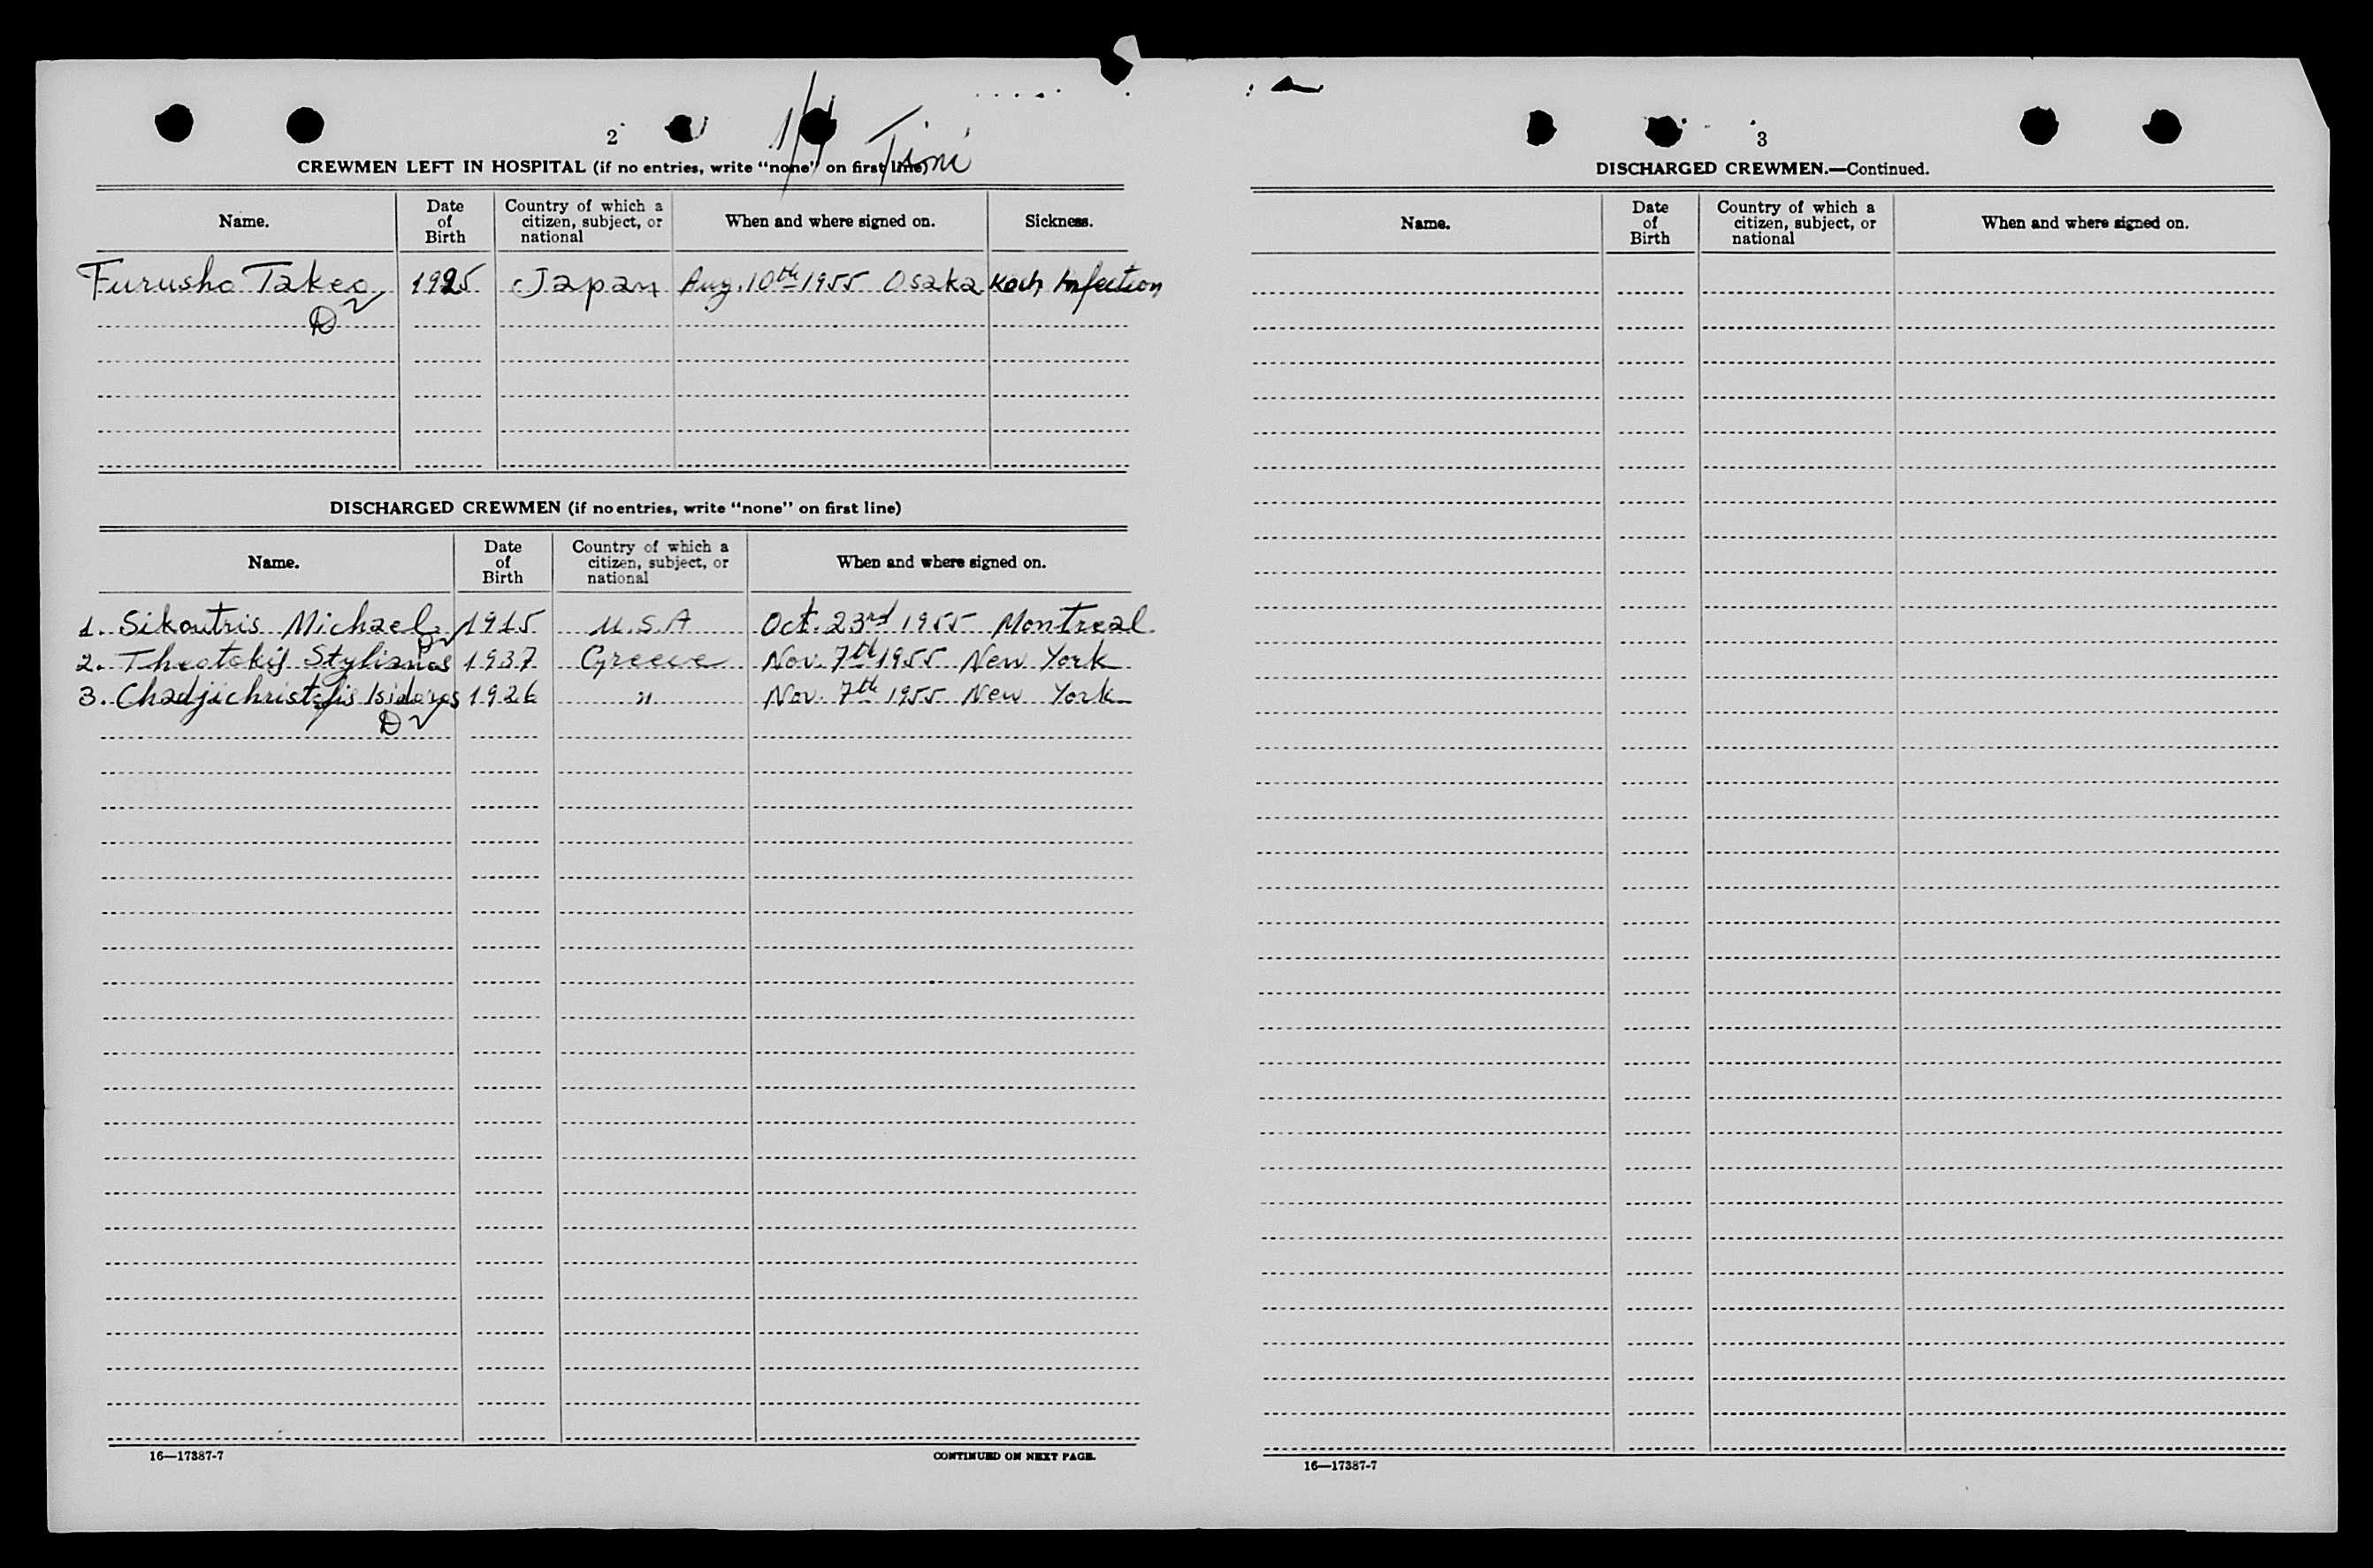 2
Tini
CREWMEN LEFT IN HOSPITAL (if no entries, write "none" on first line)
Name. Date of Birth Country of which a citizen, subject, or national When and where signed on. Sickness.
Furusho Takeo 1925 Japan Aug. 10th 1955 Osaka Koch Infection
D
DISCHARGED CREWMEN (if no entries, write "none" on first line)
Name. Date of Birth Country of which a citizen, subject, or national When and where signed on.
1. Sikoutris Michael 1915 U.S.A Oct. 23rd 1955 Montreal
2. Theotokis Stylianos 1937 Greece Nov. 7th 1955 New York
3. Chadjichristofis Isidoros 1926 " Nov. 7th 1955 New York
D
16—17387-7 CONTINUED ON NEXT PAGE.
3
DISCHARGED CREWMEN.—Continued.
Name. Date of Birth Country of which a citizen, subject, or national When and where signed on.
16—17387-7